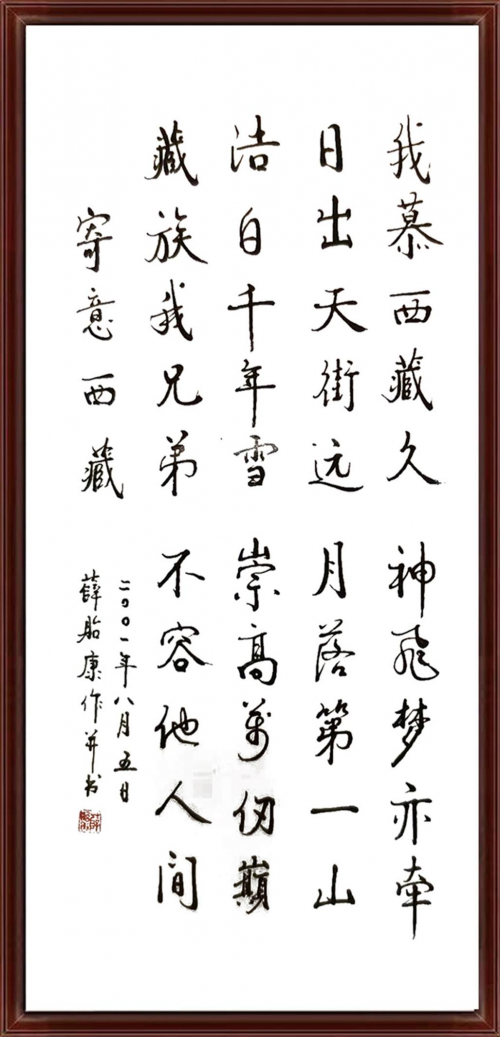 我慕西藏久 神飛梦亦牵
日出天街远 月落第一山
洁白千年雪 崇高萬仞巅
藏族我兄弟 不容他人间
寄意西藏
二〇〇一年八月五日
薛贻康作并书